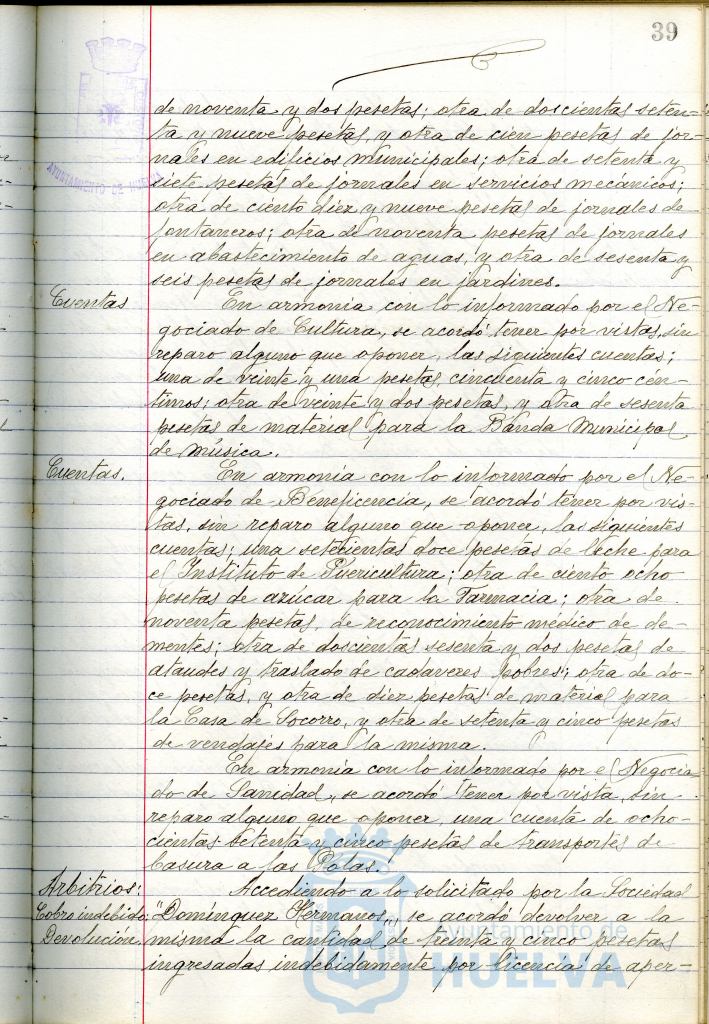 39
AYUNTAMIENTO DE HUELVA
de noventa y dos pesetas; otra de doscientas seten-
ta y nueve pesetas, y otra de cien pesetas de jor-
nales en edificios municipales; otra de setenta y
siete pesetas de jornales en servicios mecánicos;
otra de ciento diez y nueve pesetas de jornales de
fontaneros; otra de noventa pesetas de jornales
en abastecimiento de aguas, y otra de sesenta y
seis pesetas de jornales en jardines.
Cuentas
En armonía con lo informado por el Ne-
gociado de Cultura, se acordó tener por vistas, sin
reparo alguno que oponer, las siguientes cuentas;
una de veinte y una pesetas, cincuenta y cinco cén-
timos; otra de veinte y dos pesetas, y otra de sesenta
pesetas de material para la Banda Municipal
de música.
Cuentas.
En armonía con lo informado por el Ne-
gociado de Beneficencia, se acordó tener por vis-
tas, sin reparo alguno que oponer, las siguientes
cuentas; una setecientas doce pesetas de leche para
el Instituto de Puericultura; otra de ciento ocho
pesetas de azúcar para la Farmacia; otra de
noventa pesetas, de reconocimiento médico de de-
mentes; otra de doscientas sesenta y dos pesetas de
ataudes y traslado de cadaveres pobres; otra de do-
ce pesetas, y otra de diez pesetas de material para
la Casa de Socorro, y otra de setenta y cinco pesetas
de vendajes para la misma.
En armonía con lo informado por el Negocia
do de Sanidad, se acordó tener por vista, sin
reparo alguno que oponer, una cuenta de ocho-
cientas setenta y cinco pesetas de transportes de
basura a las Potas.
Arbitrios:
Cobro indebido;
Devolución
Accediendo a lo solicitado por la Sociedad
"Domínguez Hermanos", se acordó devolver a la
misma la cantidad de treinta y cinco pesetas
ingresadas indebidamente por licencia de aper-
Ayuntamiento de
HUELVA